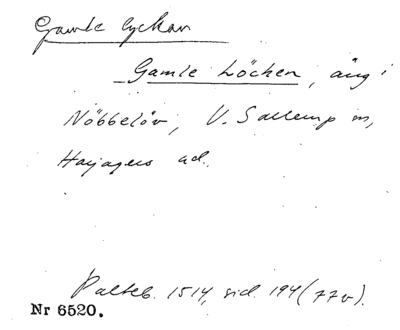 Gamle lyckan
Gamle Löcken, äng i
Nöbbelöv, V. Sallerup sn,
Harjagers hd.
Palteb. 1514, sid. 194 (77v).
Nr 6520.